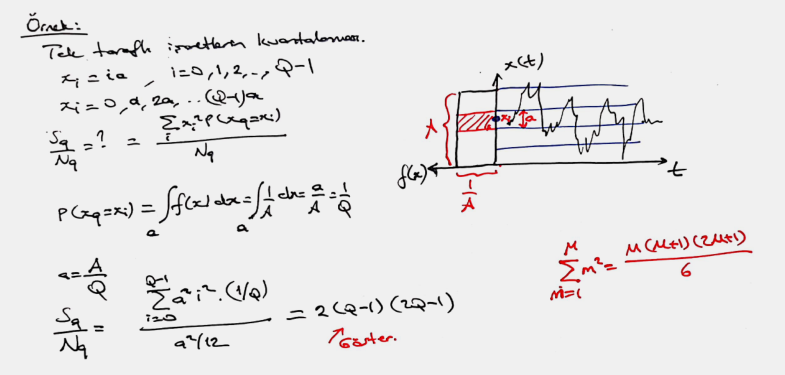 Örnek:
Tek taraflı işaretlerin kuantalanması.
xᵢ = ia , i=0,1,2,.., Q-1
xᵢ = 0, a, 2a, ...(Q-1)a
Sq/Nq = ? = Σᵢ xᵢ² P(xq=xᵢ) / Nq
P(xq=xᵢ) = ∫ₐ f(x) dx = ∫ₐ 1/A dx = a/A = 1/Q
a = A/Q
Sq/Nq = Σ_{i=0}^{Q-1} a² i² . (1/Q) / a²/12 = 2(Q-1)(2Q-1)
Göster.
x(t)
A
xᵢ
a
f(x)
t
1/A
Σ_{m=1}^{M} m² = M(M+1)(2M+1) / 6